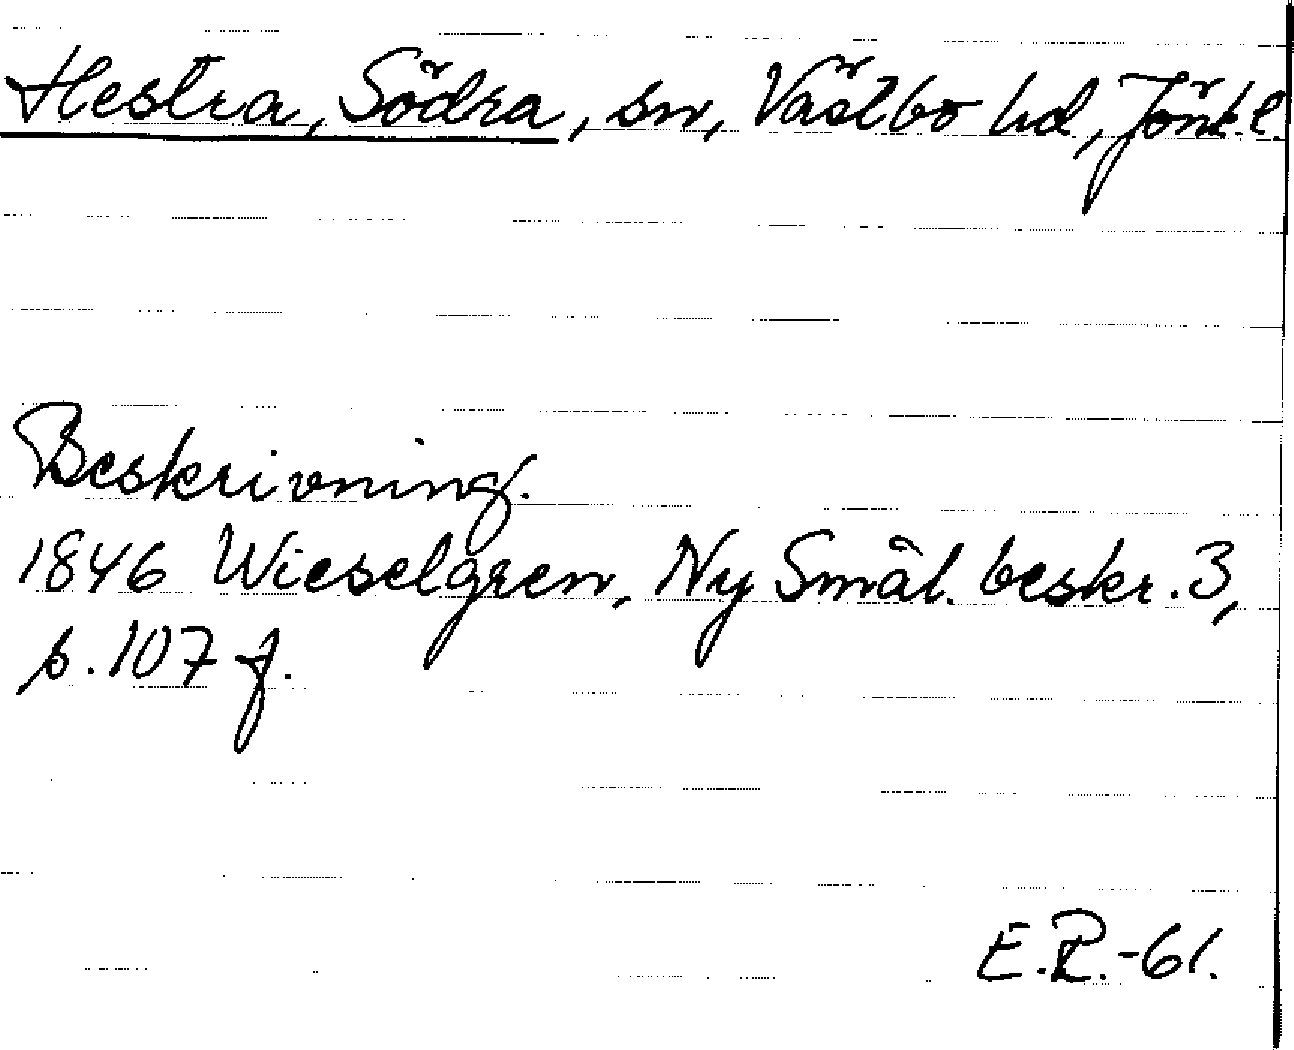 Hestra, Södra, sn, Västbo hd, Jönk.l.
Beskrivning.
1846 Wieselgren, Ny Smål. beskr. 3,
s. 107 f.
E.R.-61.